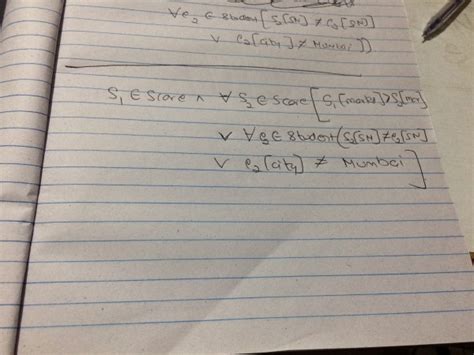 ∀e₂ ∈ Student [ S₂[SN] ≠ e₂[SN]
∨ e₂[city] ≠ Mumbai ] )
S₁ ∈ Score ∧ ∀ S₂ ∈ Score [ S₁[marks] > S₂[mar]
∨ ∀e₂ ∈ Student ( S₂[SN] ≠ e₂[SN]
∨ e₂[city] ≠ Mumbai ]